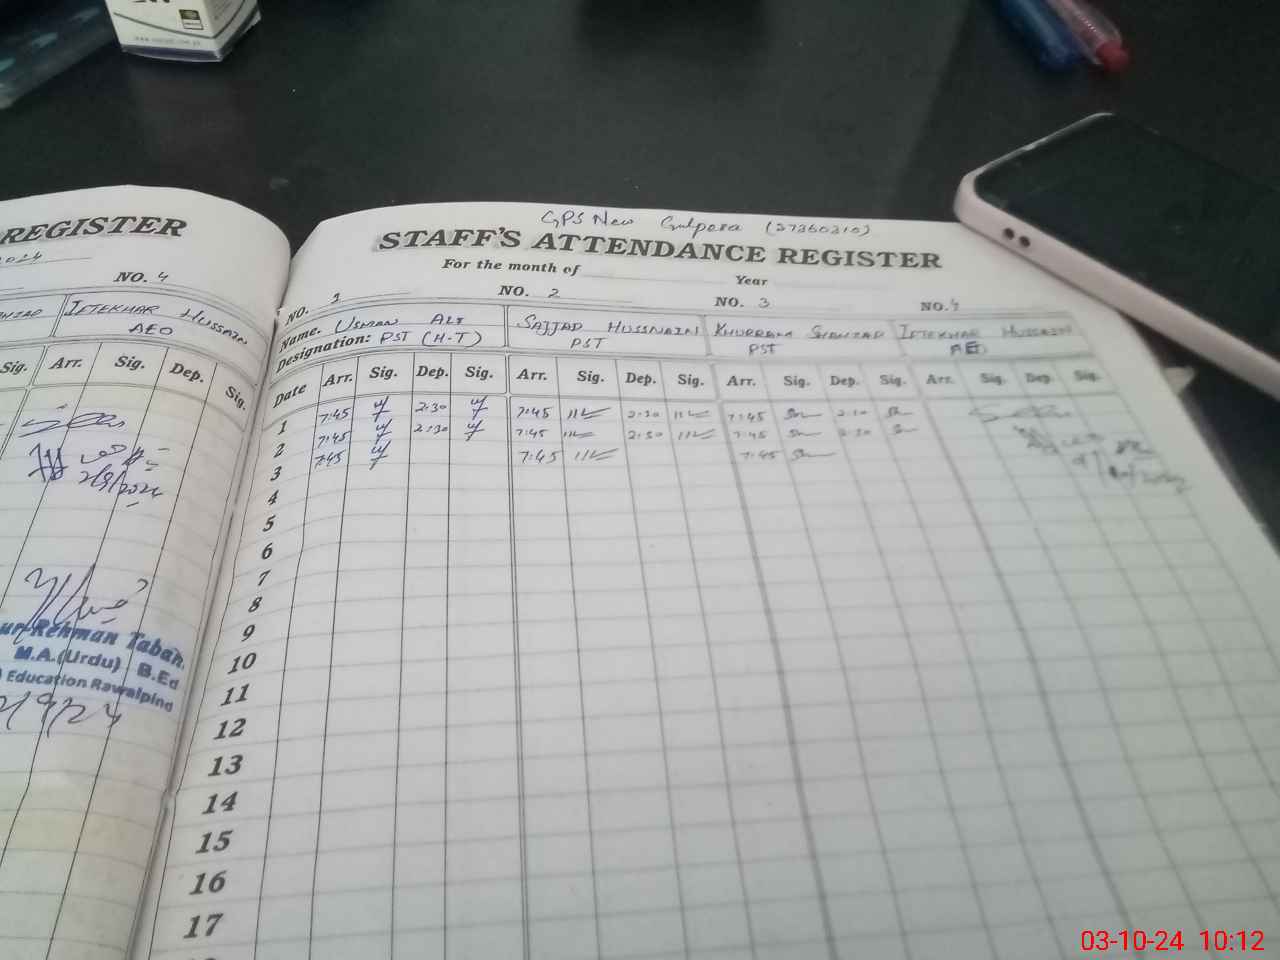 REGISTER
2024
NO. 4
IFTEKHAR HUSSAIN
AEO
Sig. Arr. Sig. Dep. Sig.
2/9/2024
ur-Rehman Taban
M.A.(Urdu) B.Ed
Education Rawalpind
GPS New Gulpera (37360210)
STAFF'S ATTENDANCE REGISTER
For the month of Year
NO. 1 NO. 2 NO. 3 NO. 4
Name. USMAN ALI SAJJAD HUSSNAIN KHURRAM SHAHZAD IFTEKHAR HUSSAIN
Designation: PST (H-T) PST PST AEO
Date Arr. Sig. Dep. Sig. Arr. Sig. Dep. Sig. Arr. Sig. Dep. Sig. Arr. Sig. Dep. Sig.
1 7:45 2:30 7:45 2:30 7:45 2:30
2 7:45 2:30 7:45 2:30 7:45 2:30
3 7:45 7:45 7:45
4
5
6
7
8
9
10
11
12
13
14
15
16
17
03-10-24 10:12